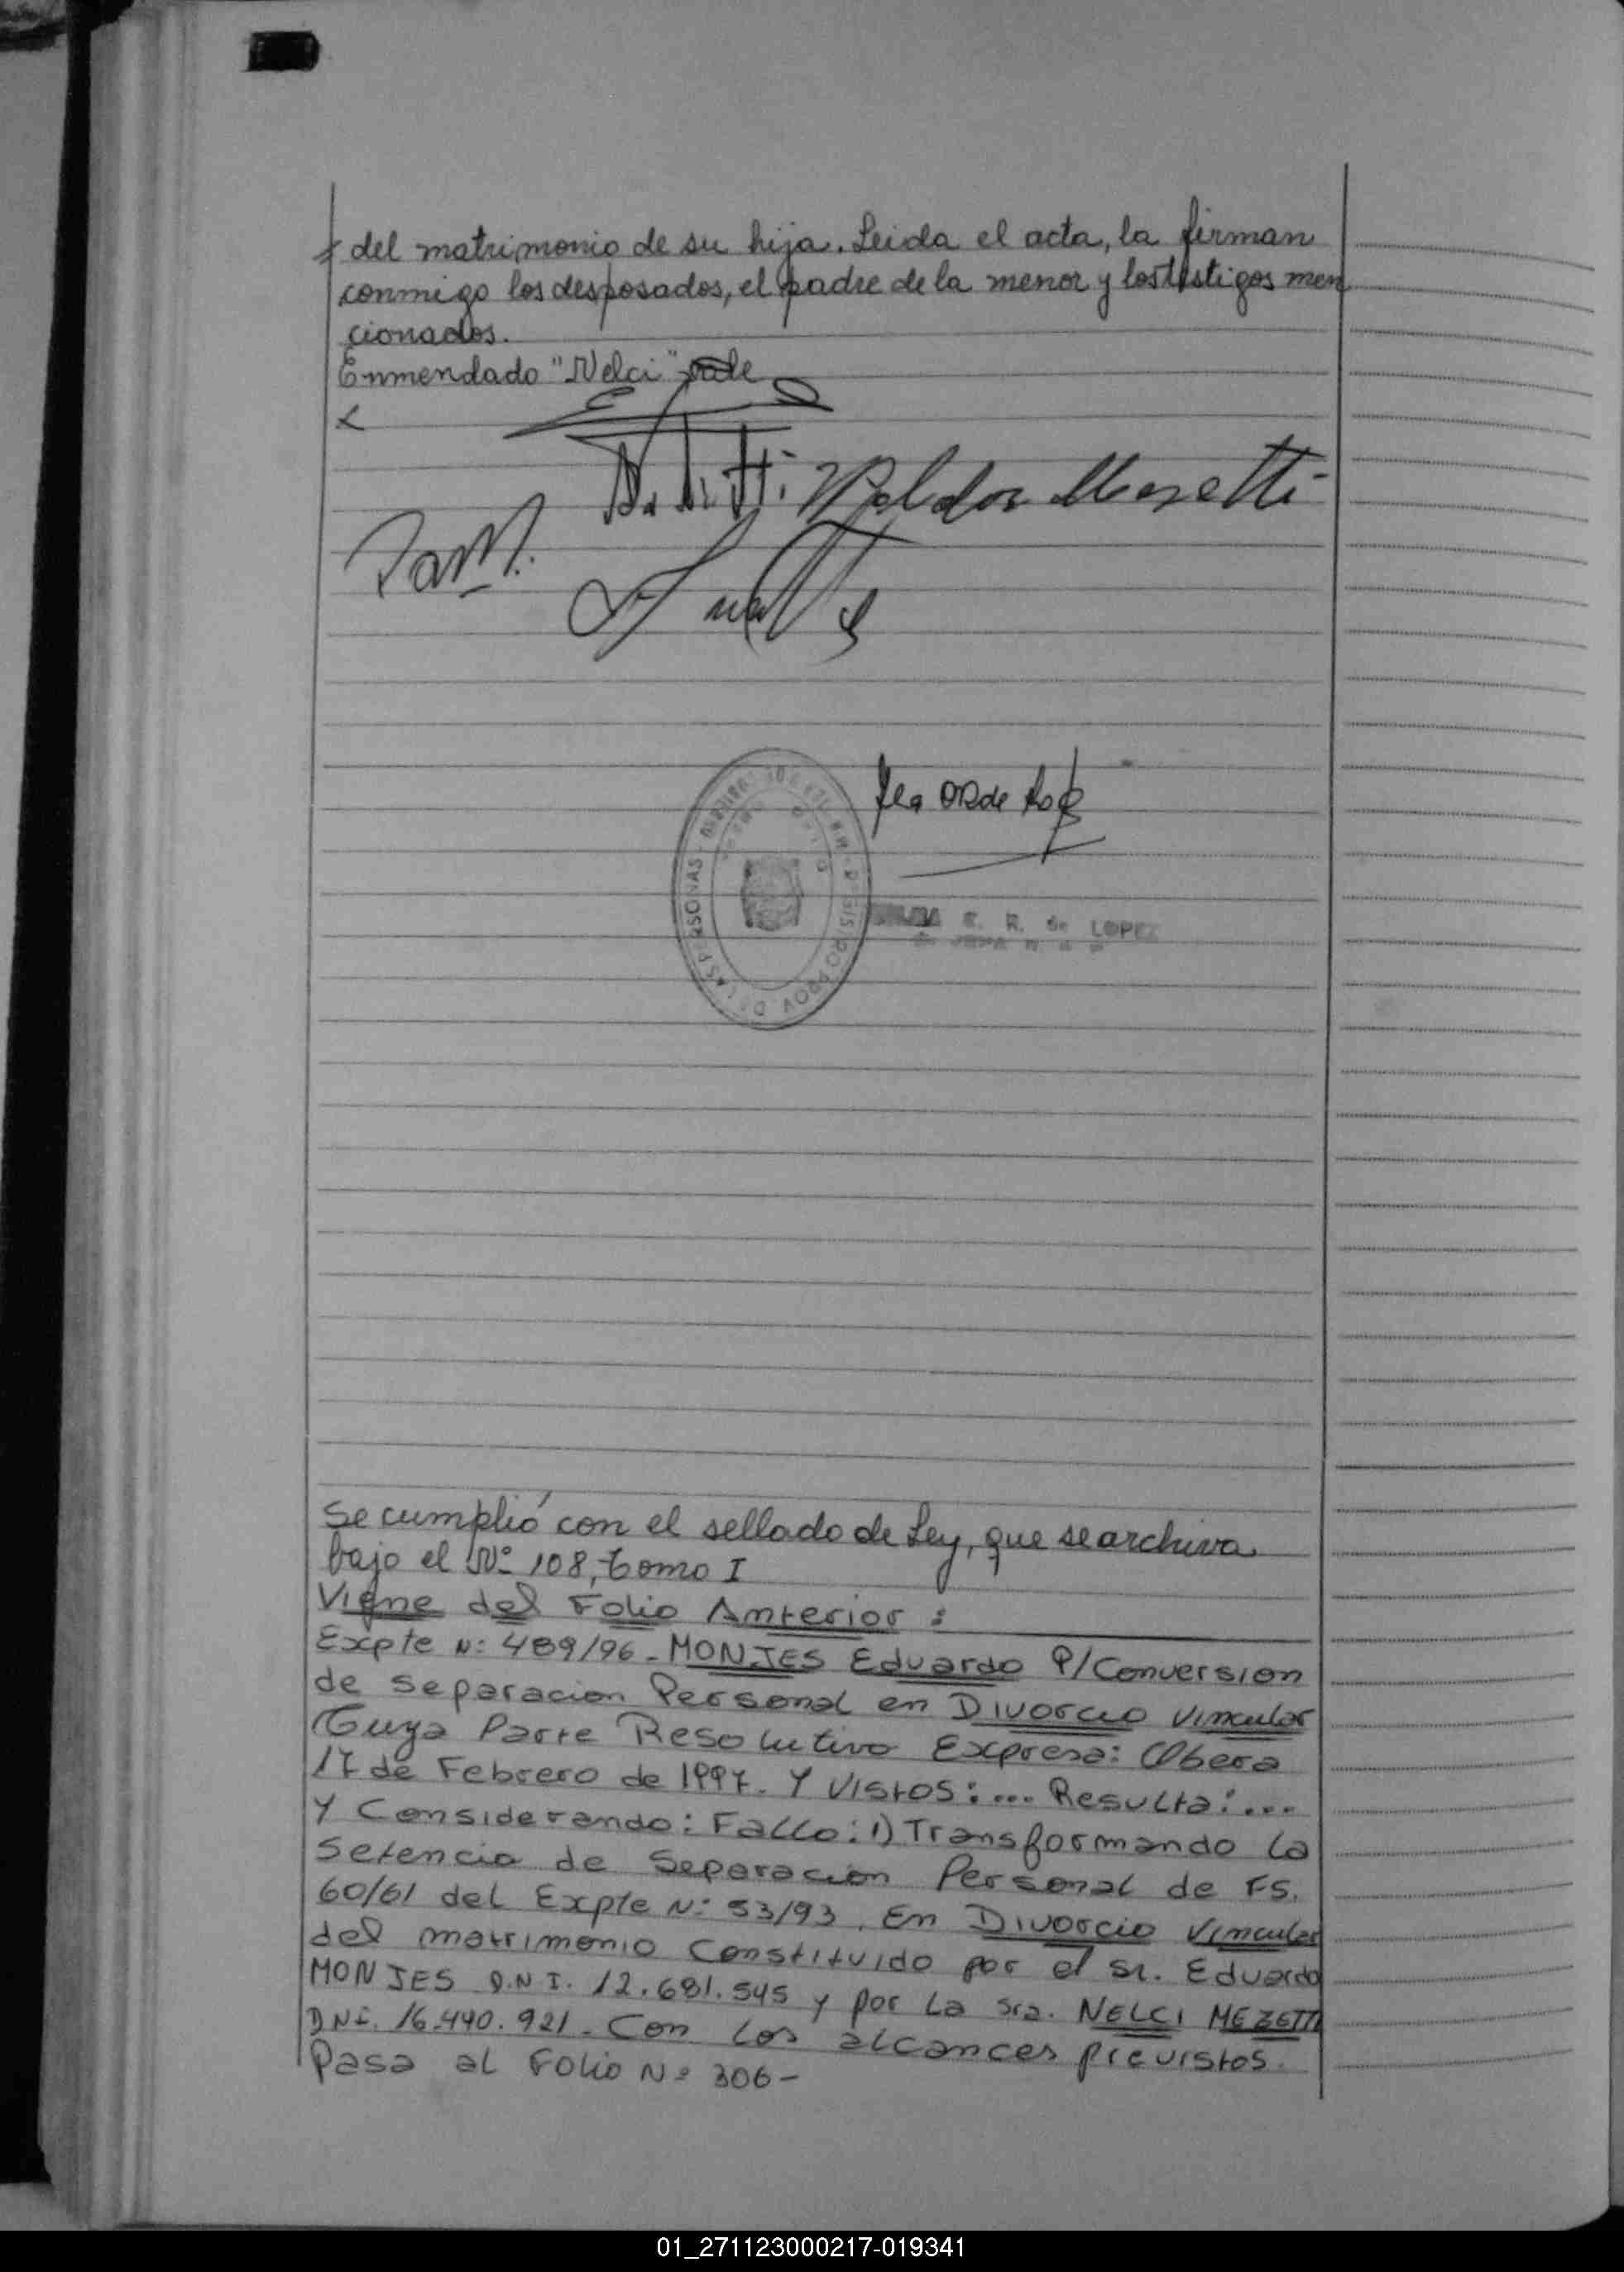 del matrimonio de su hija. Leida el acta, la firman
conmigo los desposados, el padre de la menor y los testigos men
cionados.
Enmendado "Nelci" vale
S. R. de LOPEZ
Se cumplió con el sellado de Ley, que se archiva
bajo el Nº 108, Tomo I
Viene del Folio Anterior:
Expte N: 489/96 - MONJES Eduardo P/Conversion
de Separacion Personal en Divorcio Vincular
Cuya Parte Resolutiva Expresa: Obera
17 de Febrero de 1997. Y Vistos: ... Resulta: ...
Y Considerando: Fallo: 1) Transformando la
Setencia de Separacion Personal de FS.
60/61 del Expte N: 53/93. En Divorcio Vincular
del matrimonio Constituido por el Sr. Eduardo
MONJES D.N.I. 12.681.545 y por la Sra. NELCI MEZETTI
DNI. 16.440.921 - Con los alcances previstos.
Pasa al Folio Nº 306 -
01_271123000217-019341